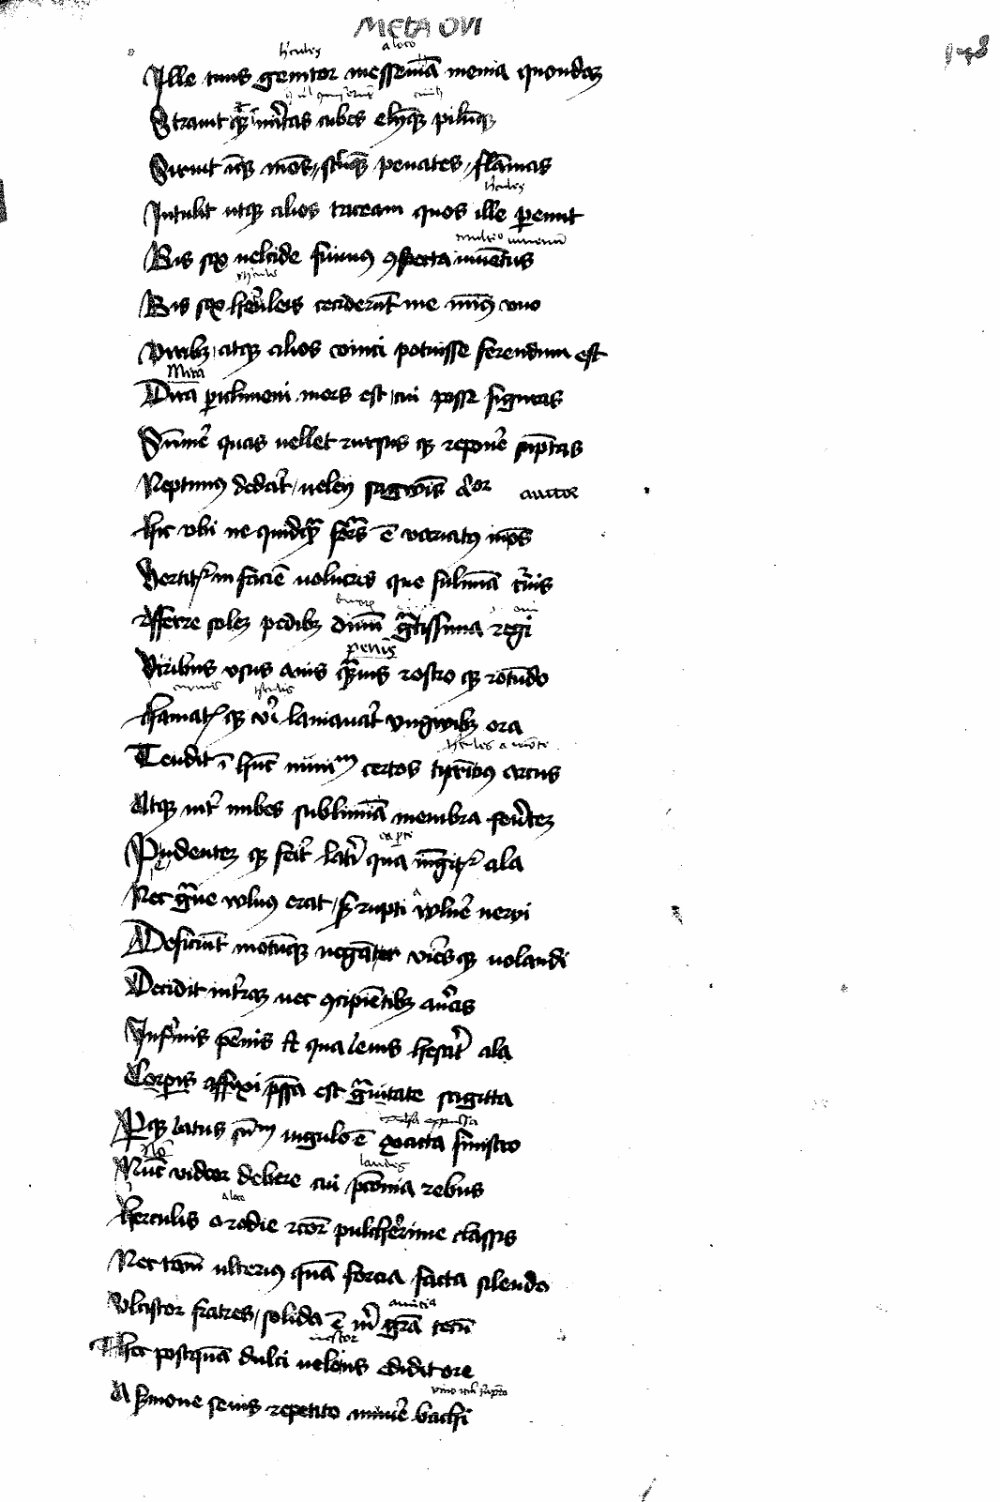 META OVI
148
hercules a loco
Ille tuus genitor messeniā menia quondaʒ
Strauit qʒ īmeritas urbes elynqʒ pilunqʒ
Diruit inqʒ meos ferrūqʒ penates flāmas
hercules
Intulit utqʒ alios taceam quos ille peremit
Bis sex nelide fuimus ꝯspecta iuuētus
Bis sex herculeis ceciderūt me minus uno
Viribʒ atqʒ alios vinci potuisse ferendum est
Mira
Dira periclimeni mors est cui posse figuras
Sumere quas uellet rursus qʒ reponere sumptas
Neptunus dederat nelei sanguinis auctor auctor
Hic ubi ne quidquam formas ē variatus in omnes
Vertitur in faciē uolucris que fulmina curuis
Afferre solet pedibʒ diuum gratissima regi
penis
Viribus usus auis rostro qʒ rotundo
herculis
Hamatis qʒ viri laniauerat unguibʒ ora
Tendit ī hunc nimium certos tirintius arcus
Atqʒ inter nubes sublimia membra ferentem
Pendentem qʒ ferit lateri qua iungitur ala
Nec graue vulnus erat sed rupti vulnere nerui
Deficiunt motumqʒ negant viresqʒ uolandi
Decidit in terram nec ꝯcipientibʒ auras
Infirmis pennis et qua leuis heserat ala
Corporis affixi pressa est grauitate sagitta
Perqʒ latus summum iugulo ē exacta sinistro
No
Nunc videor debere cui preconia rebus
a loco
Herculis o rodie rector pulcherrime classis
Nec tamen ulterius quam forcia facta silendo
Vlciscor fratres solida ē michi gratia tecum
nestor
Hec postquam dulci neleius edidit ore
A sermone senis repetito munere bachi